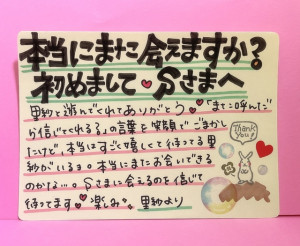 本当にまた会えますか？
初めまして♥Sさまへ
里紗と遊んでくれてありがとう♥「また呼んだ
ら信じてくれる？」の言葉を笑顔でごまかし
たけど、本当はすごく嬉しくて待ってる里
紗がいるョ。本当にまたお会いできる
のかな…。Sさまに会えるのを信じて
待ってます♡楽しみ♡ 里紗より
Thank you!